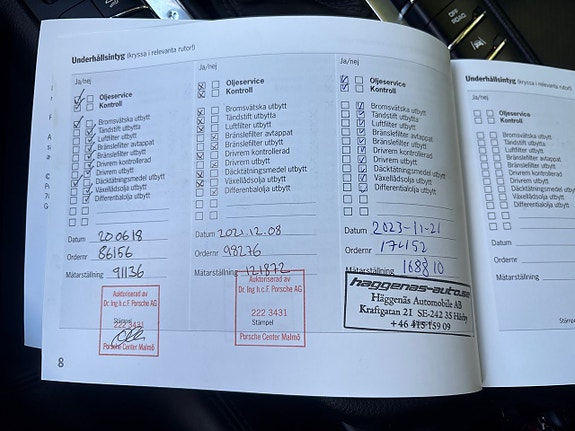 OFF
ROAD
Underhållsintyg (kryssa i relevanta rutor!)
Ja/nej
Oljeservice
Kontroll
Bromsvätska utbytt
Tändstift utbytta
Luftfilter utbytt
Bränslefilter avtappat
Bränslefilter utbytt
Drivrem kontrollerad
Drivrem utbytt
Däcktätningsmedel utbytt
Växellådsolja utbytt
Differentialolja utbytt
Datum 200618
Ordernr 86156
Mätarställning 91136
Auktoriserad av
Dr. Ing h.c.F. Porsche AG
222 3431
Stämpel
Porsche Center Malmö
8
Ja/nej
Oljeservice
Kontroll
Bromsvätska utbytt
Tändstift utbytta
Luftfilter utbytt
Bränslefilter avtappat
Bränslefilter utbytt
Drivrem kontrollerad
Drivrem utbytt
Däcktätningsmedel utbytt
Växellådsolja utbytt
Differentialolja utbytt
Datum 2021.12.08
Ordernr 98276
Mätarställning 121872
Auktoriserad av
Dr. Ing h.c.F. Porsche AG
222 3431
Stämpel
Porsche Center Malmö
Ja/nej
Oljeservice
Kontroll
Bromsvätska utbytt
Tändstift utbytta
Luftfilter utbytt
Bränslefilter avtappat
Bränslefilter utbytt
Drivrem kontrollerad
Drivrem utbytt
Däcktätningsmedel utbytt
Växellådsolja utbytt
Differentialolja utbytt
Datum 2023-11-21
Ordernr 174152
Mätarställning
haggenas-auto.se
Häggenäs Automobile AB
Kraftgatan 21 SE-242 35 Hörby
+46 415 159 09
Underhållsintyg (kryssa i relevanta rutor!)
Ja/nej
Oljeservice
Kontroll
Bromsvätska utbytt
Tändstift utbytta
Luftfilter utbytt
Bränslefilter avtappat
Bränslefilter utbytt
Drivrem kontrollerad
Drivrem utbytt
Däcktätningsmedel utbytt
Växellådsolja utbytt
Differentialolja utbytt
Datum
Ordernr
Mätarställning
Stämpel